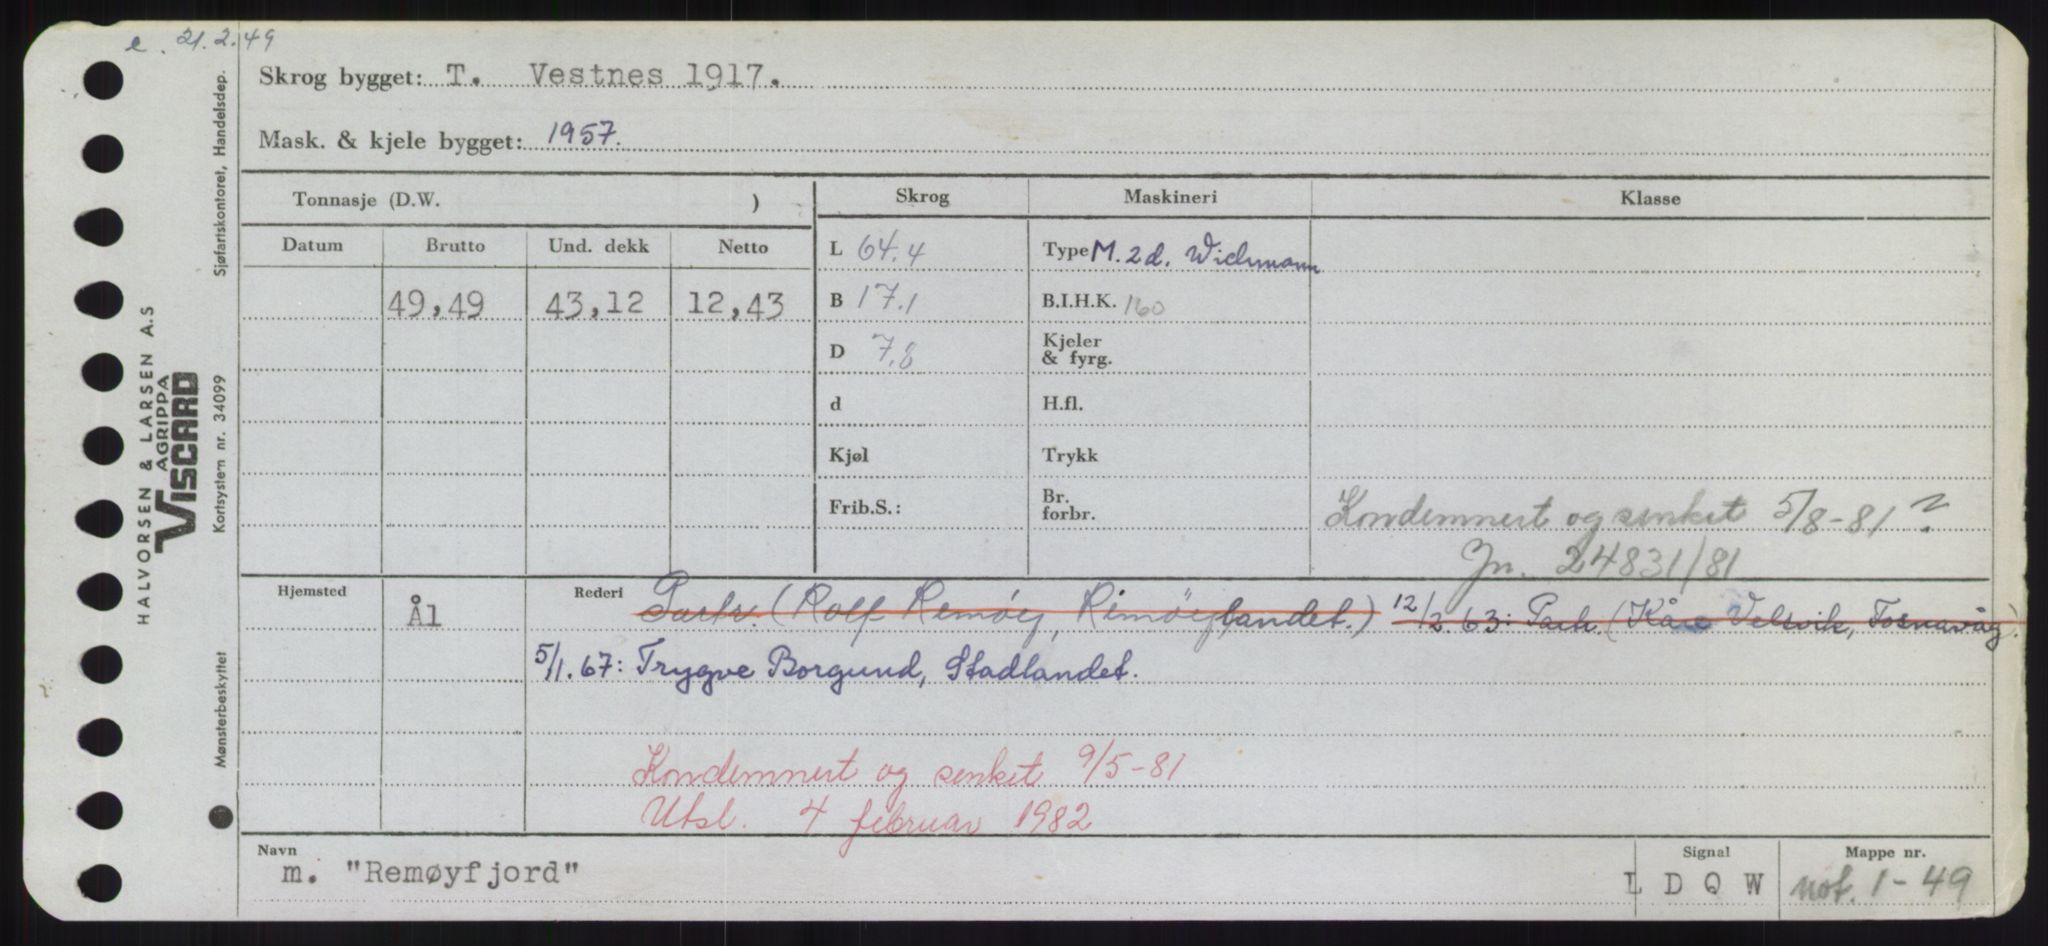 e. 21.2.49
Skrog bygget: T. Vestnes 1917.
Mask. & kjele bygget: 1957.
Tonnasje (D.W. )
Skrog
Maskineri
Klasse
Datum
Brutto
Und. dekk
Netto
49,49
43,12
12,43
L 64.4
B 17.1
D 7.8
d
Kjøl
Frib.S.:
Type M. 2 d. Wichmann
B.I.H.K. 160
Kjeler
& fyrg.
H.fl.
Trykk
Br.
forbr.
Kondemnert og senket 5/8-81 ?
Jn. 24831/81
Hjemsted
Ål
Rederi
Partr. (Rolf Remøy, Remøylandet.) 12/2.63: Partr. (Kåre Velsvik, Fosnavåg).
5/1.67: Trygve Borgund, Stadlandet.
Kondemnert og senket 9/5-81
Utsl. 4 februar 1982
Navn
m. "Remøyfjord"
Signal
L D Q W
Mappe nr.
not. 1-49
HALVORSEN & LARSEN A.S
AGRIPPA
VISCARD
Sjøfartskontoret, Handelsdep.
Kortsystem nr. 34099
Mønsterbeskyttet